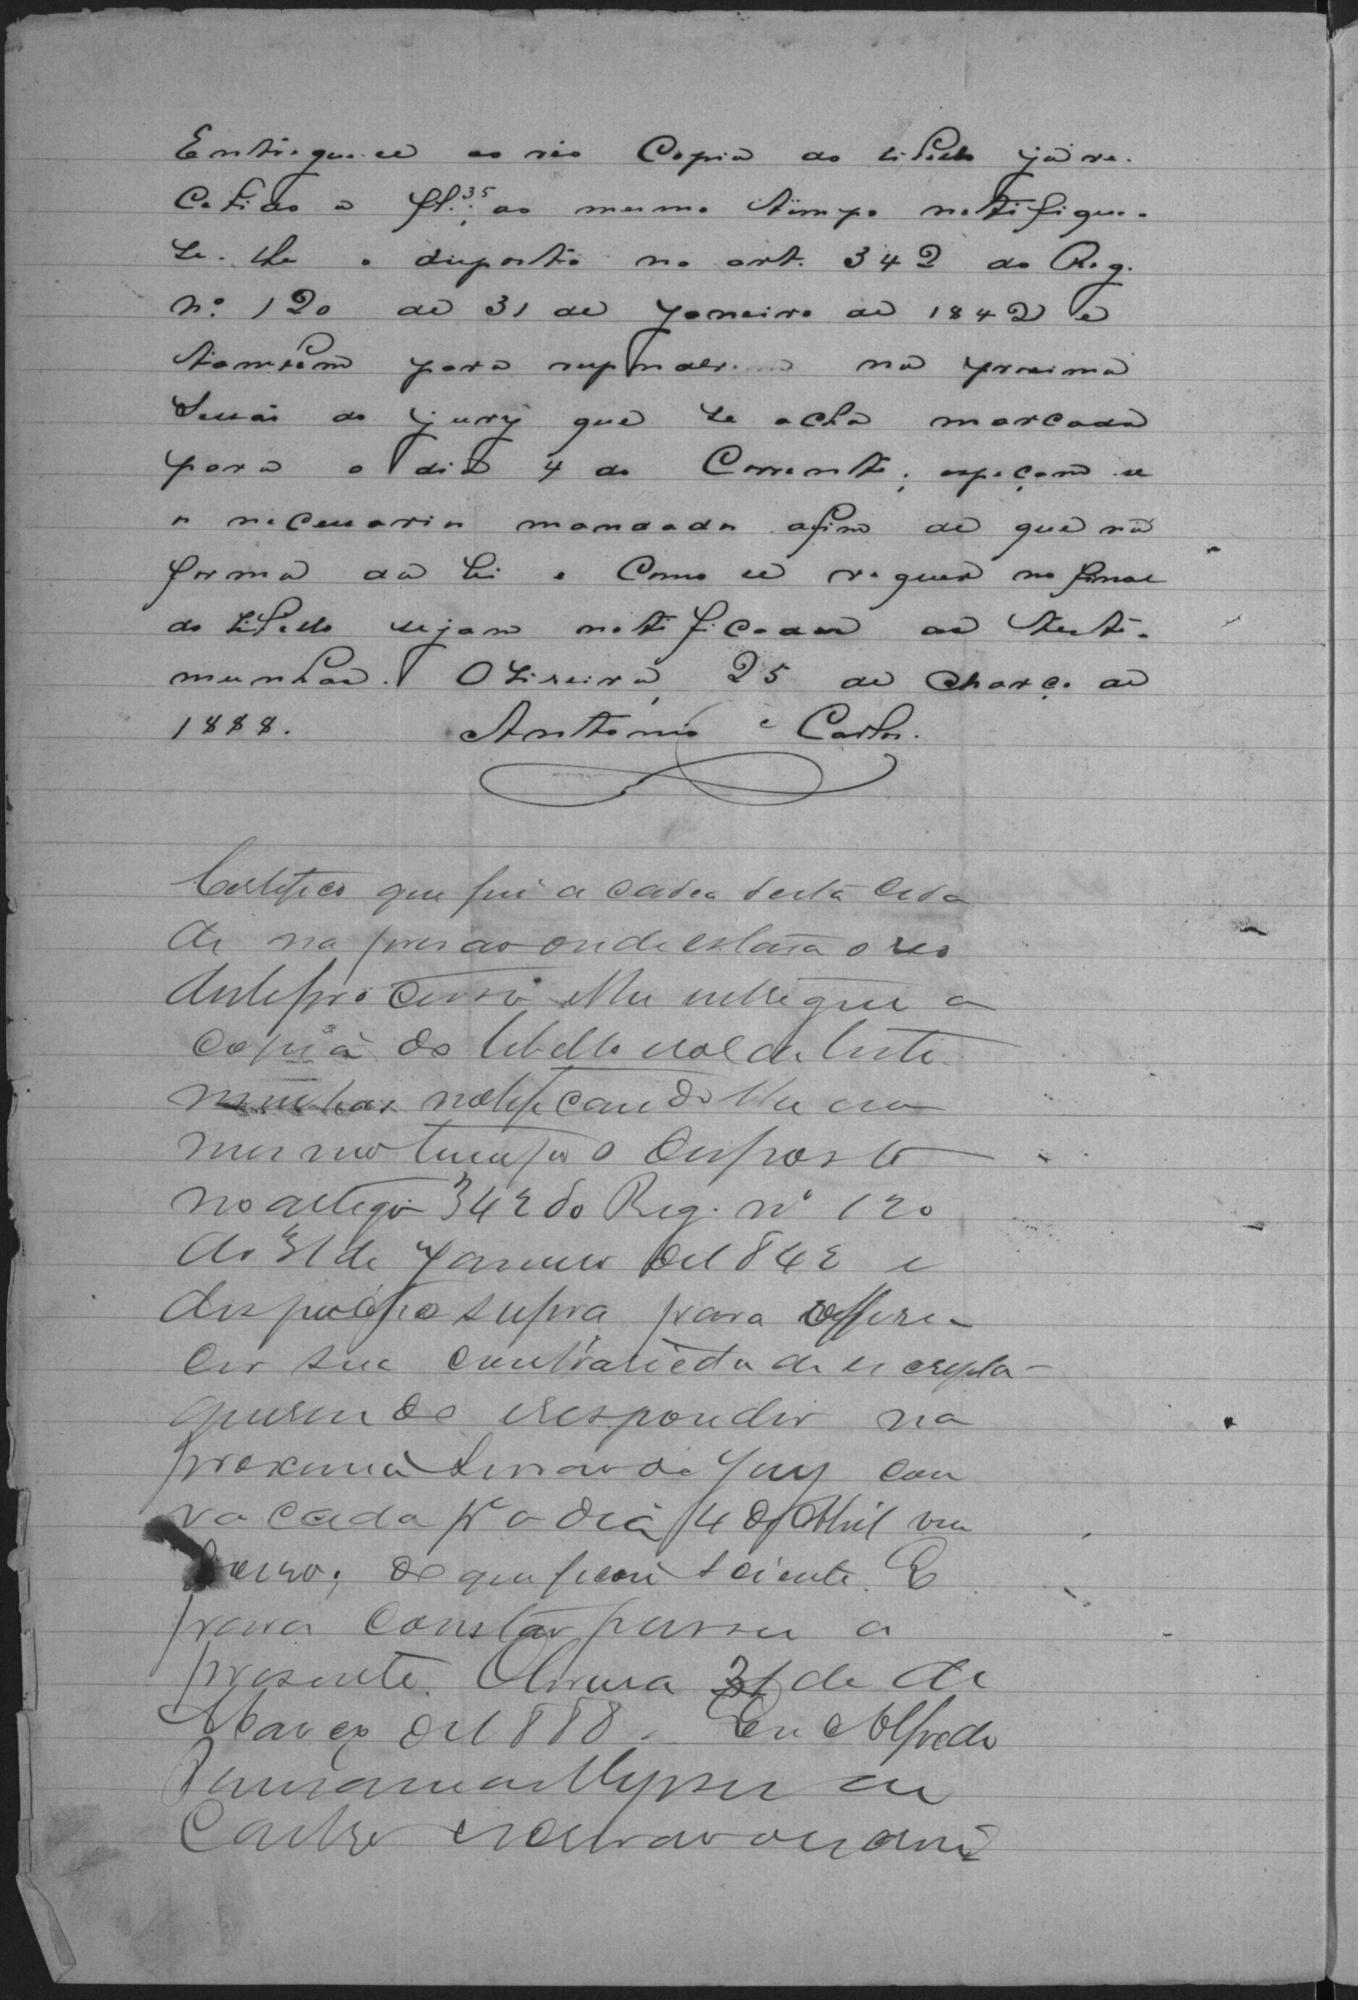 Entregue-se ao réo copia do libello já re-
cebido a fl. 35, ao mesmo tempo notifique-
se-lhe o disposto no art. 342 do Reg.
nº 120 de 31 de Janeiro de 1842 e
tambem para responder na proxima
sessão do jury que se acha marcada
para o dia 4 do Corrente; espeçam-se
os necessarios mandados afim de que na
forma da lei e como se requer no final
do libello sejam notificadas as teste-
munhas. Oliveira, 25 de Março de
1888. Antonio Carlos.
Certifico que fui a cadea desta cida
de na prisão onde estava o reo
deste processo e lhe entregue a
copia do libello e rol de teste-
munhas notificando lhe ao
mesmo tempo o disposto
no artigo 342 do Reg. nº 120
de 31 de Janeiro de 1842 e
despacho supra para offere-
cer sua contrariedade
querendo e responder na
proxima sessão do Jury con
vocada pª o dia 4 de Abril vin
douro; do que ficou sciente. E
para constar passei a
presente. Oliveira 31 de de
Março de 1888. Eu Alfredo
Castro escrivão